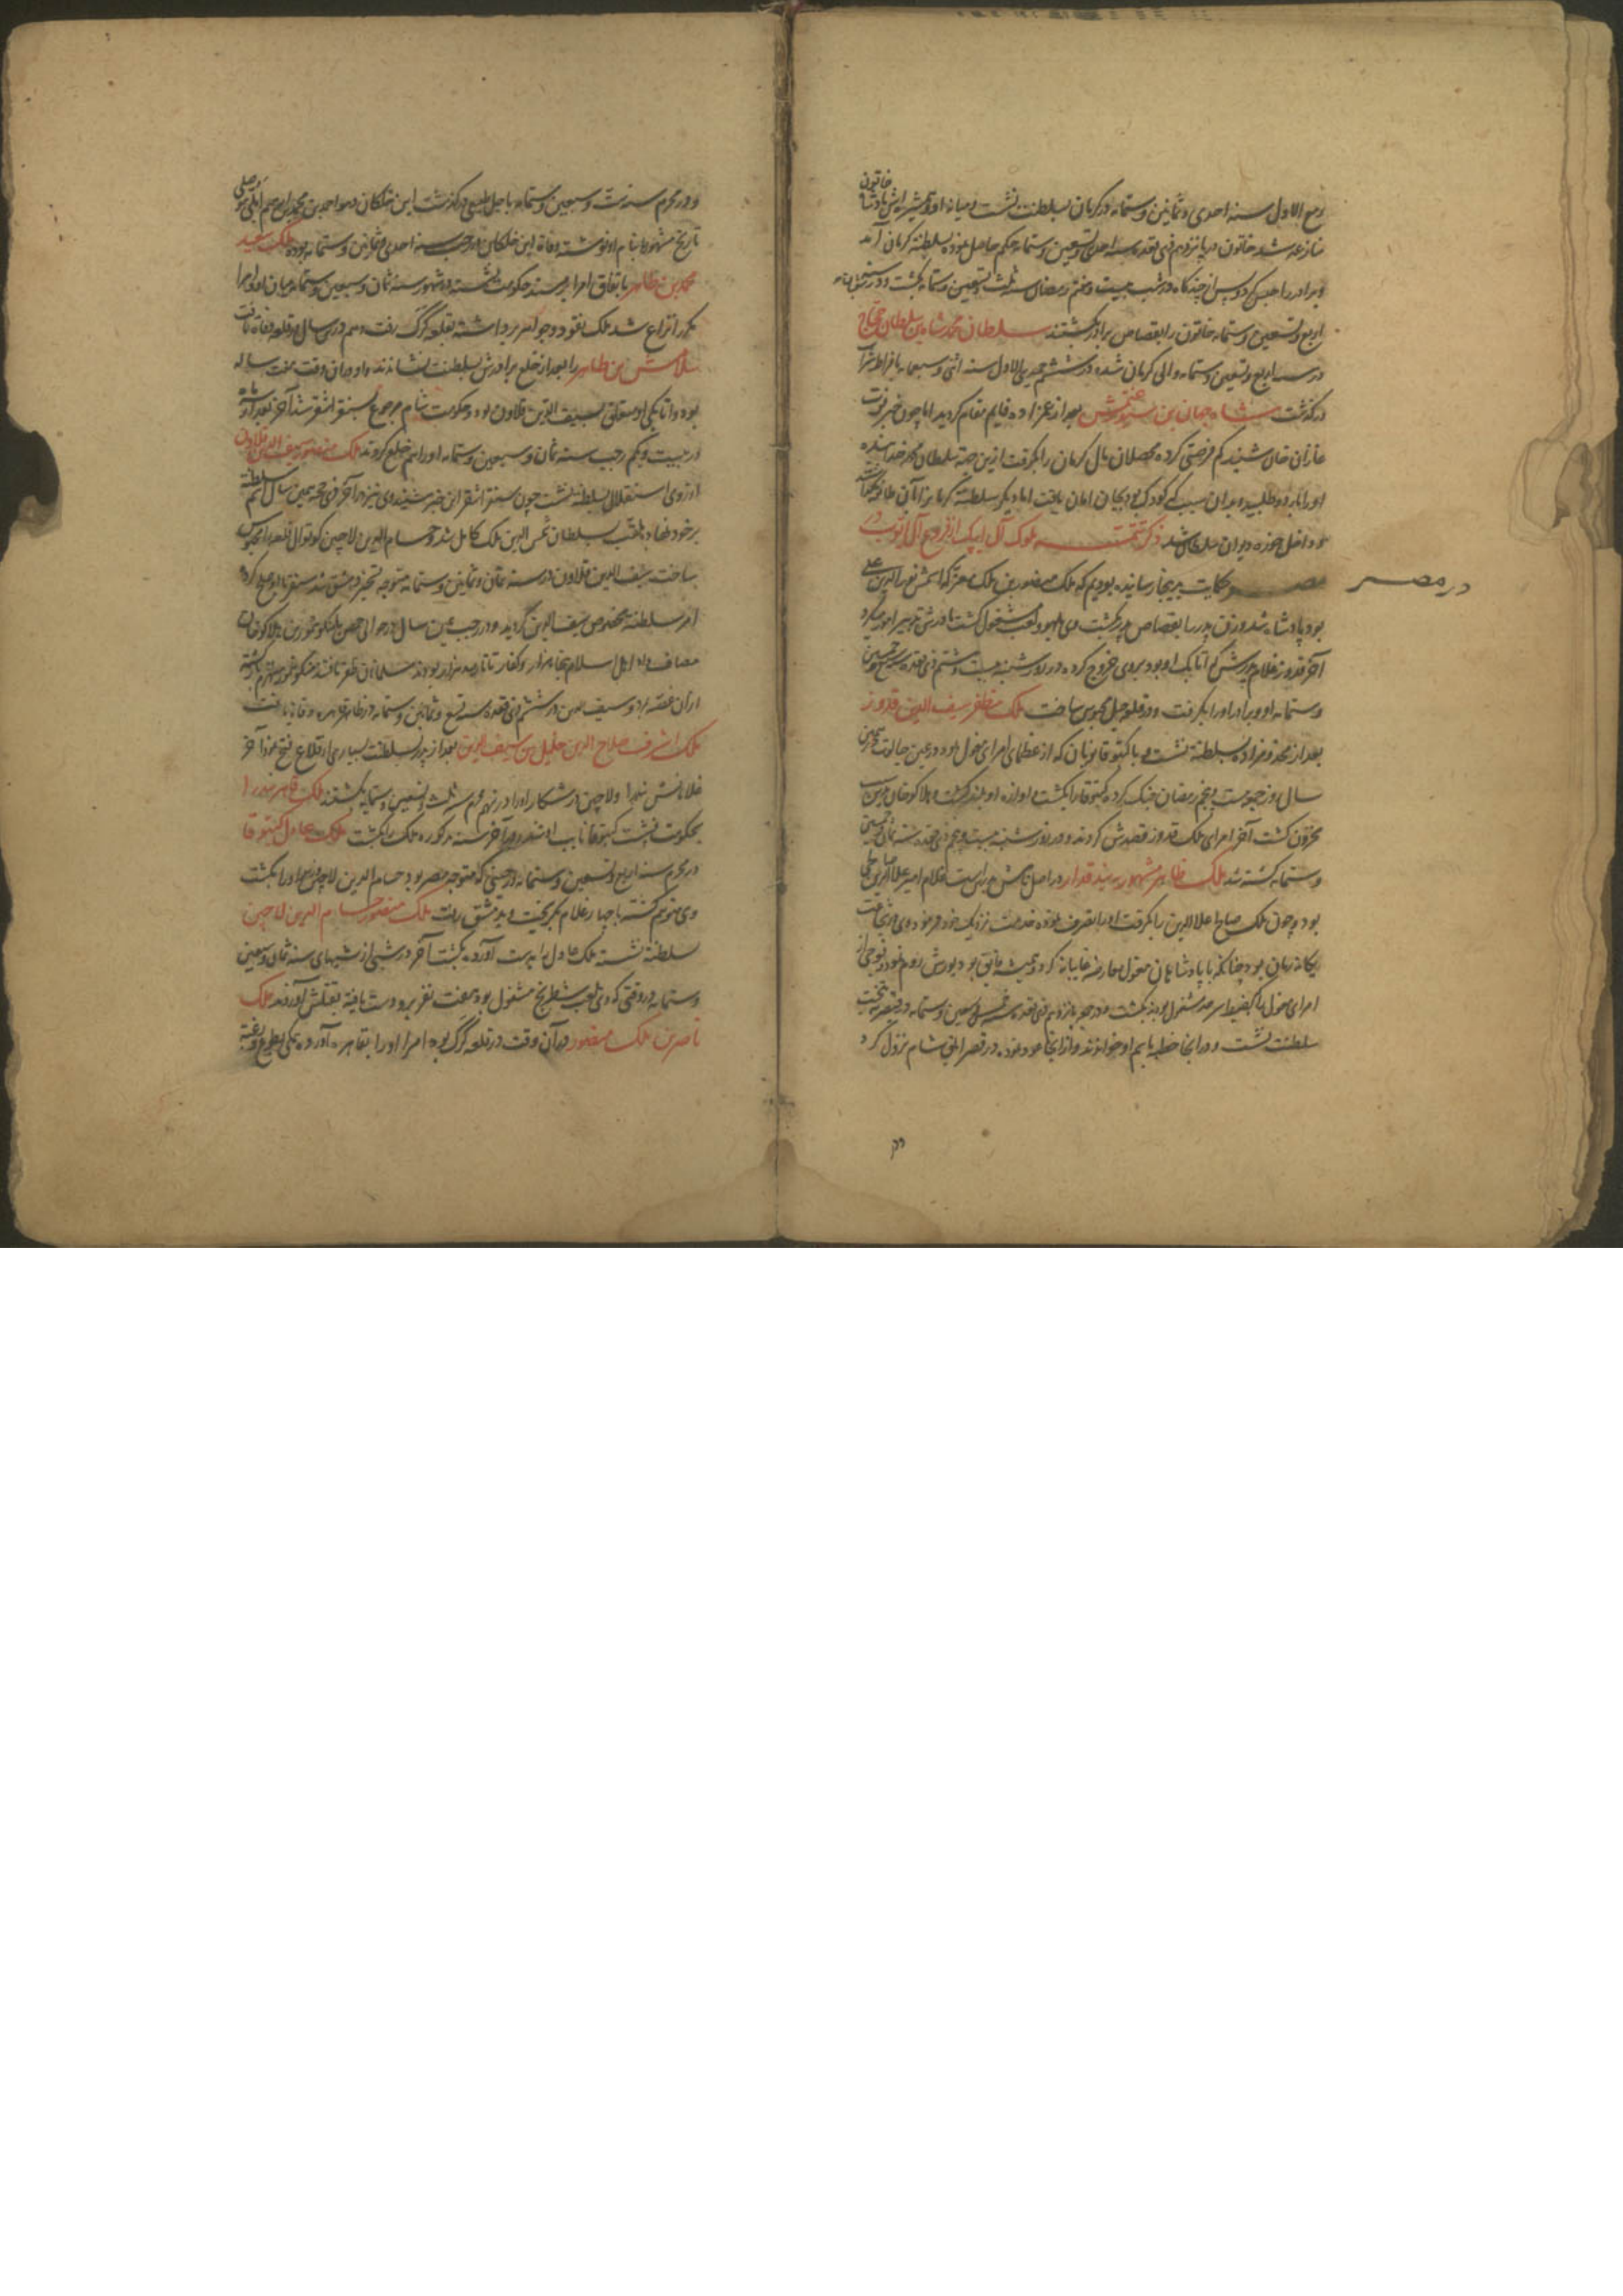 ربیع الاول سنه احدی و ثمانین و ستمایه در کرمان بسلطنت نشست و میانه او و همشیره اش پادشا خاتون
منازعه شد خاتون در پانزدهم ذی قعده سنه احدی و تسعین و ستمایه حکم حاصل نموده بسلطنة کرمان آمد
و برادر را حبس کرد و پس از چند کاه در شب بیست و هفتم رمضان سنه ثلث و تسعین و ستمایه بکشت و در سنه
اربع و تسعین و ستمایه خاتون را بقصاص برادر بکشتند سلطان محمد شاه بن سلطان حجاج
در سنه اربع و تسعین و ستمایه والی کرمان شده در ششم جمیدی الاول سنه اثنی و سبعمایه بافراط شراب
درکذشت شاه جهان بن سیورغتمش بعد از عم زاده قایم مقام کردید اما چون خبر فوت
غازان خان شنید کم فرصتی کرده محصلان مال کرمان را بکرفت ازین جهة سلطان محمد خدابنده
او را باردو طلبید و بدان سبب که کودک بود بجان امان یافت اما دیکر سلطنة کرمان از آن طایفه
و داخل حوزه دیوان سلطان شد ذکر تتمت ملوک آل ایبک از فروع آل ایوب در
مصر حکایت بدینجا رسانیده بودیم که ملک منصور بن ملک معز که اسمش نور الدین علی
در مصر
بود پادشاه شد و زن پدر را بقصاص پدر بکشت وی بلهو و لعب مشغول کشت مادرش تدبیر امور میکرد
آخر قدوز غلام پدرش که اتابک او بود بروی خروج کرده در روز شنبه بیست و هشتم ذی قعده سنه سبع و خمسین
و ستمایه او و برادر او را بکرفت و در قلعه جبل محبوس ساخت ملک مظفر سیف الدین قدوز
بعد از مخدوم زاده بسلطنة نشست و با کتبوقا نویان که از عظمای امرای مغول بود در عین جالوت در همین
سال روز جمعه بیست و پنجم رمضان جنک کرده کتبوقا را بکشت و اوازه او بلند کشت و هلاکو خان ازین سبب
محزون کشت آخر امرای ملک قدوز قصدش کردند و در روز شنبه بیست و پنجم ذی قعده سنه ثمان و خمسین
و ستمایه کشته شد ملک ظاهر مشهور ببندقدار در اصل نامش بیبرس است غلام امیر علا الدین
بود و چون ملک صالح علا الدین را بکرفت او را بتصرف نموده خدمت نزدیک خود فرمود وی در شجاعت
یکانه زمان بود چنانکه با پادشاهان مغول معارضه غایبانه کرد و همیشه فایق بود بورش روم نمود و فوجی از
امرای مغول که بحفظ سرحد مشغول بودند بکشت و در جمعه پانزدهم ذی قعده سنه خمس و سبعین و ستمایه در قیصریه بتخت
سلطنت نشست و در آنجا خطبه باسم او خواندند و از آنجا عود نموده در قصر ابلق شام نزول کرد
و در محرم سنه ست و سبعین و ستمایه باجل طبیعی درکذشت ابن خلکان و هو احمد بن محمد بن ابراهیم اربلی
تاریخ مشهور را بنام او نوشته وفاة ابن خلکان در رجب سنه احدی و ثمانین و ستمایه بوده ملک سعید
محمد بن ظاهر باتفاق امرا بر مسند حکومت نشسته در شهور سنه ثمان و سبعین و ستمایه میان او و امرا
مکرر نزاع شد ملک نقود و جواهر برداشته بقلعه کرک رفت و هم درین سال در قلعه وفاة یافت
سلامش بن ظاهر را بعد از خلع برادرش بسلطنت نشاندند و او در آن وقت هفت ساله
بود و اتابکی او متعلق بسیف الدین قلاون بود و حکومت شام مرجوع بسنقر اشقر شد آخر بعد از سه ماه
در بیست و یکم رجب سنه ثمان و سبعین و ستمایه او را هم خلع کردند ملک منصور سیف الدین قلاون
از روی استقلال بسلطنة نشست چون سنقر اشقر این خبر شنید وی نیز در آخر ذی حجه همین سال اسم سلطنة
بر خود نهاد و ملقب بسلطان شمس الدین ملک کامل شد و حسام الدین لاچین کوتوال قلعه را محبوس
ساخت سیف الدین قلاون در سنه ثمان و ثمانین و ستمایه متوجه تسخیر دمشق شد سنقر با او صلح کرد
امر سلطنة مخصوص سیف الدین کردید و در رجب همین سال در حوالی حمص با منکو تیمور بن هلاکو خان
مصاف داد اهل اسلام پنجاه هزار و کفار تاتار صد هزار بودند مسلمانان ظفر یافتند منکو تیمور منهزم کشته
از آن غصه بمرد و سیف الدین در ششم ذی قعده سنه تسع و ثمانین و ستمایه در ظاهر قاهره وفاة یافت
ملک اشرف صلاح الدین خلیل بن سیف الدین بعد از پدر بسلطنت بسیاری از قلاع فتح نمود آخر
غلامانش بیدرا و لاچین در شکار او را در نهم محرم سنه ثلث و تسعین و ستمایه بکشتند ملک قاهر بیدرا
بحکومت نشست کتبوقا نایب اشرف در آخر سنه مذکوره ملک را بکشت ملک عادل کتبوقا
در محرم سنه اربع و تسعین و ستمایه در حینی که متوجه مصر بود حسام الدین لاچین امرا او را بکشت
وی منهزم کشته با چهار غلام بکریخت و بدمشق رفت ملک منصور حسام الدین لاچین
سلطنة نشسته ملک عادل را بدست آورده بکشت آخر در شبی از شبهای سنه ثمان و تسعین
و ستمایه در وقتی که وی بلعب شطرنج مشغول بود هفت نفر برو دست یافته بقتلش آوردند ملک
ناصر بن ملک منصور در آن وقت در قلعه کرک بود امرا او را بقاهره آورده همکی بطوع و رغبة